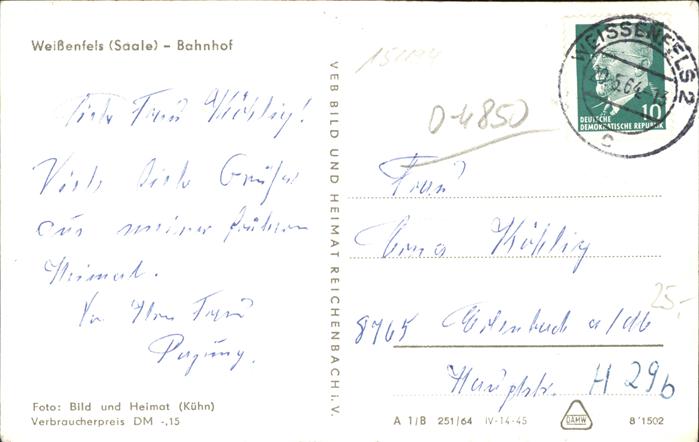 Weißenfels (Saale) – Bahnhof
Liebe Frau Köhlig!
Viele liebe Grüße
aus meiner früheren
Heimat.
Ihre Frau
VEB BILD UND HEIMAT REICHENBACH i. V.
Foto: Bild und Heimat (Kühn)
Verbraucherpreis DM -,15
D-4850
WEISSENFELS 2
.5.64.-13
c
10
DEUTSCHE
DEMOKRATISCHE REPUBLIK
Frau
Erna Köhlig
25.-
8765 Erlenbach a/db
Hauptstr. H 29b
A 1/B 251/64 IV-14-45 DAMW 8'1502